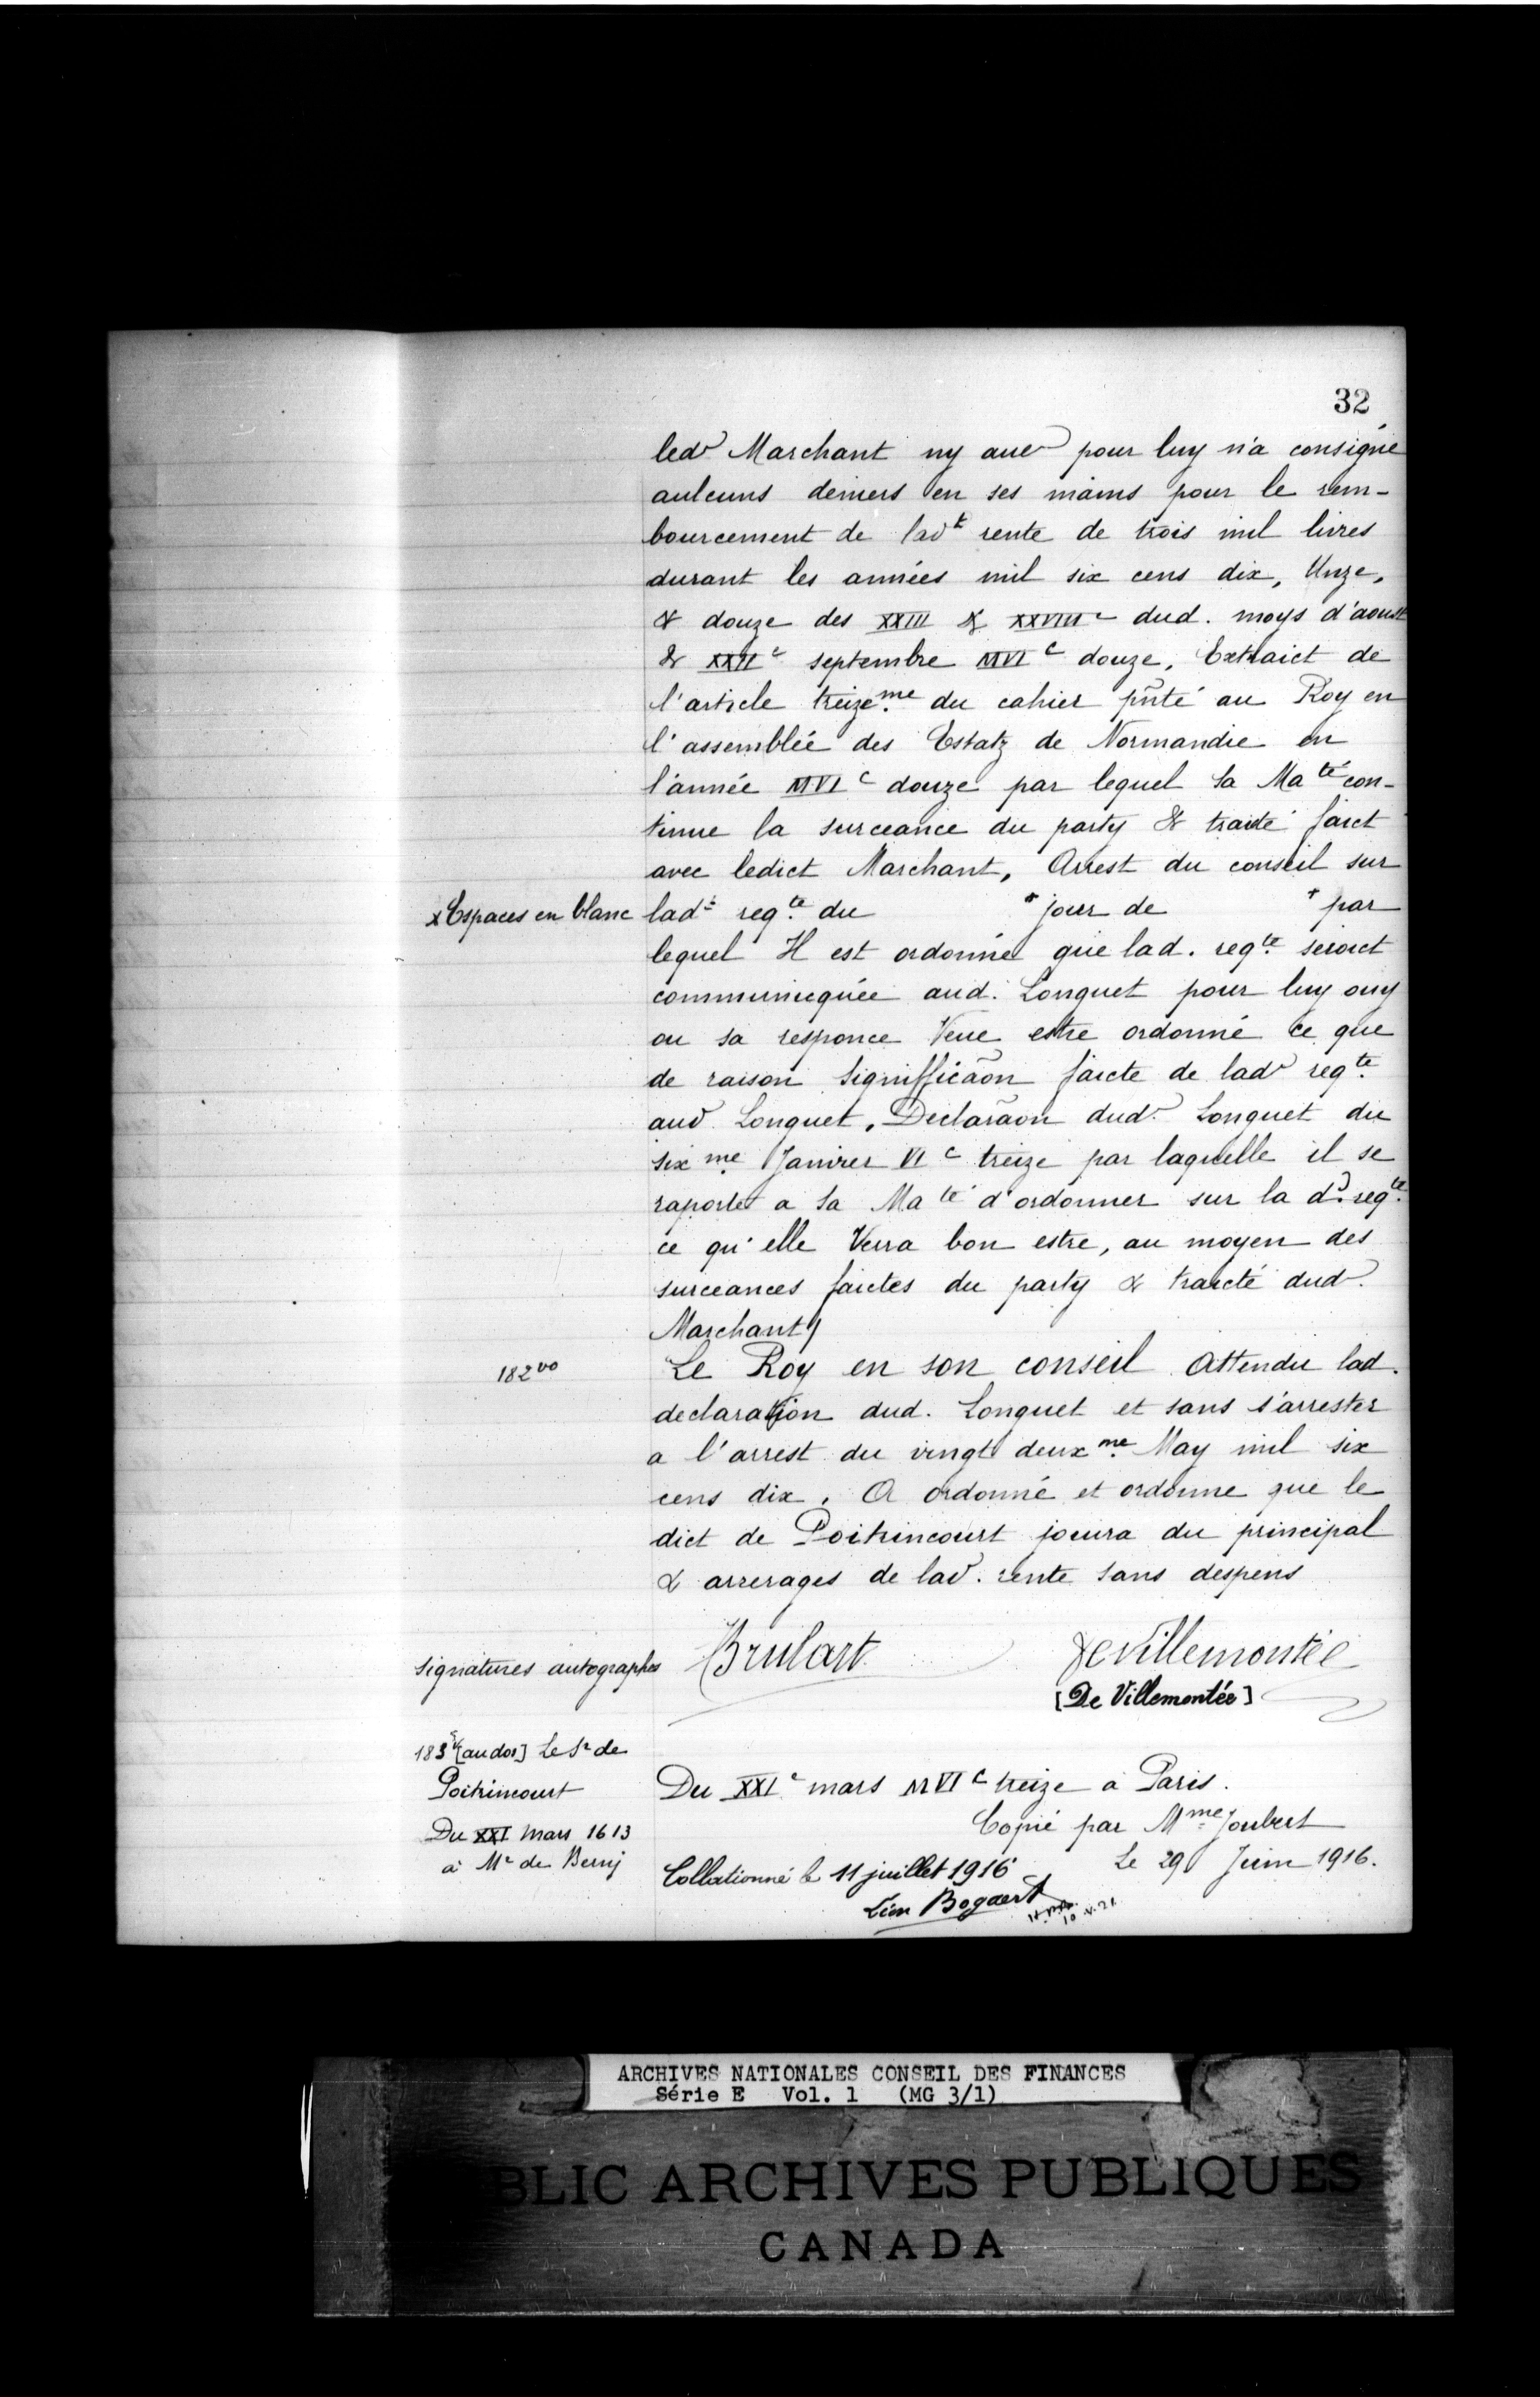 32
led Marchant ny aue pour luy n'a consigné
aulcuns deniers en ses mains pour le rem-
bourcement de lad^t rente de trois mil livres
durant les années mil six cens dix, Unze,
& douze des XXIII & XXVIII^e dud. moys d'aoust
& XXII^e septembre MVI^c douze, Extraict de
l'article treize^me du cahier pñté au Roy en
l'assemblée des Estatz de Normandie en
l'année MVI^c douze par lequel Sa Ma^té con-
tinue la surceance du party & traité faict
avec ledict Marchant, Arrest du conseil sur
x Espaces en blanc lad^e req^te du + jour de + par
lequel Il est ordonné que lad. req^te seroict
communicquée aud. Longuet pour luy ouy
ou sa responce Veue estre ordonné ce que
de raison Signifficãon faicte de lad req^te
aud Longuet, Declarãon dud. Longuet du
six^me Janvier VI^c treize par laquelle il se
raporte a Sa Ma^té d'ordonner sur la d. req^te
ce qu'elle Verra bon estre, au moyen des
surceances faictes du party & traicté dud.
Marchant/
182^vo Le Roy en son conseil Attendu lad.
declaration dud. Longuet et sans s'arrester
a l'arrest du vingt deux^me May mil six
cens dix, A ordonné et ordonne que le
dict de Poitrincourt jouira du principal
& arrerages de lad. rente sans despens
signatures autographes Brulart DeVillemontée
[De Villemontée]
183 [au dos] Le S^r de
Poitrincourt
Du XXI mars 1613
à M^r de Berny
Du XXI^e mars MVI^c treize à Paris.
Copié par M^me Joubert
Le 29 Juin 1916.
Collationné le 11 juillet 1916
Léon Bogaert
10.V.21
ARCHIVES NATIONALES CONSEIL DES FINANCES
Série E Vol. 1 (MG 3/1)
BLIC ARCHIVES PUBLIQUES
CANADA